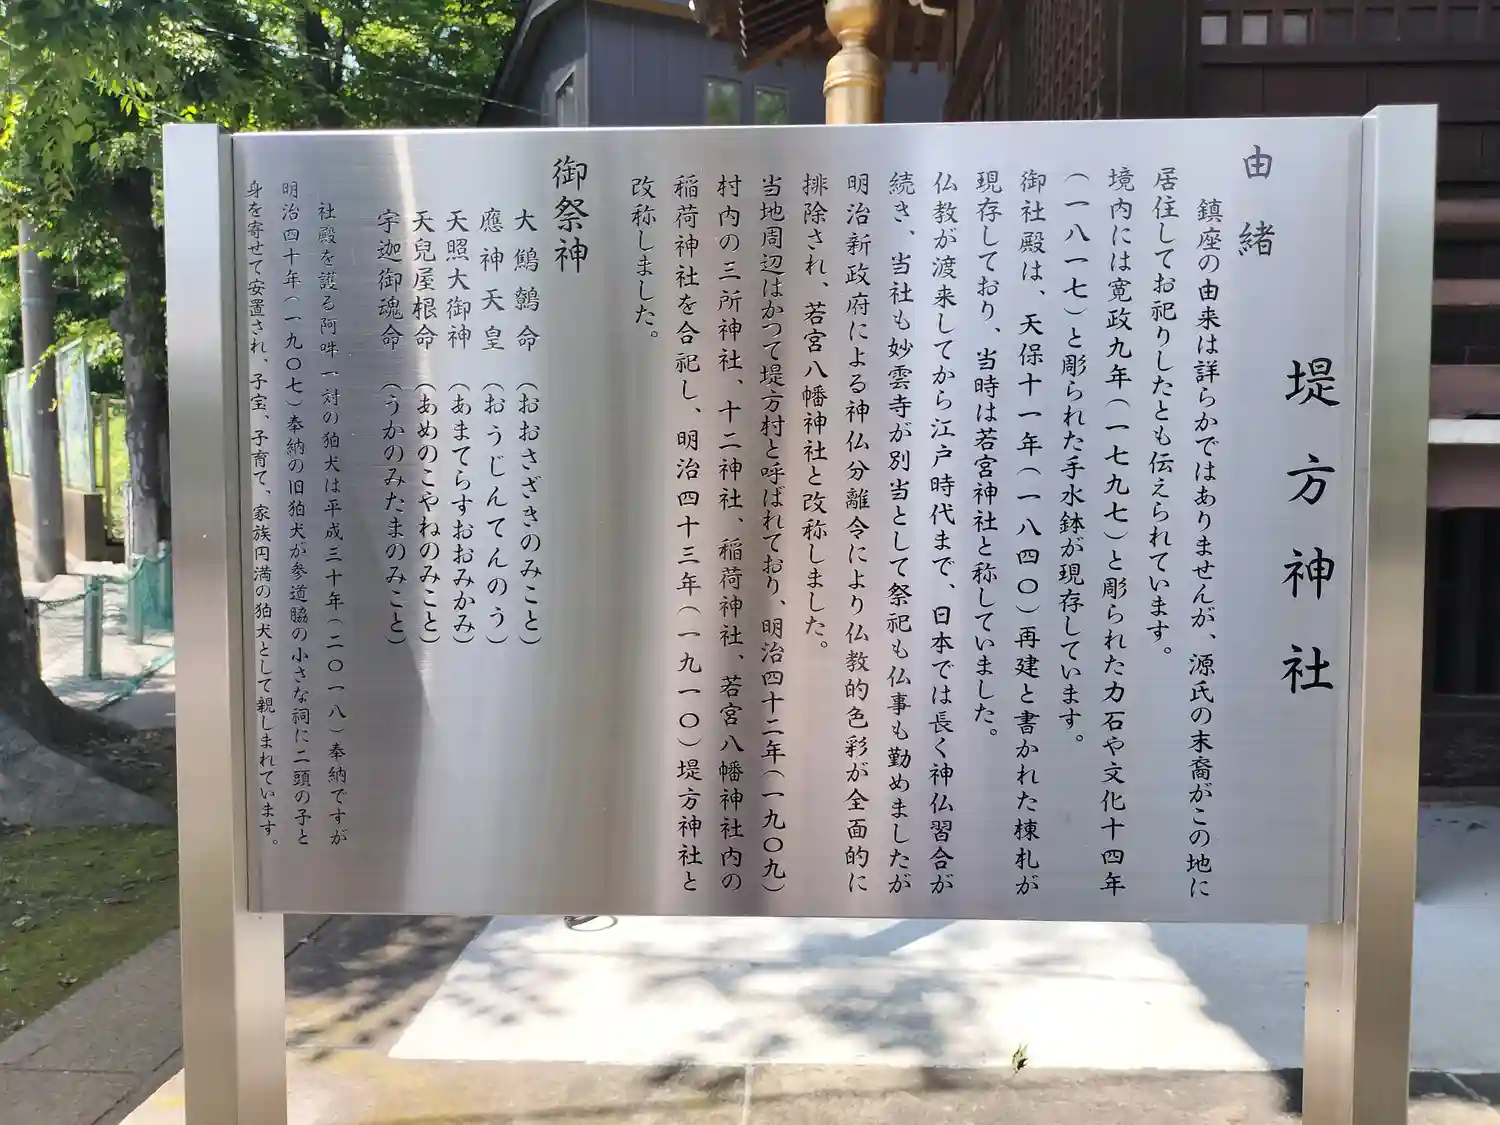 堤方神社
由緒
鎮座の由来は詳らかではありませんが、源氏の末裔がこの地に
居住してお祀りしたとも伝えられています。
境内には寛政九年(一七九七)と彫られた力石や文化十四年
(一八一七)と彫られた手水鉢が現存しています。
御社殿は、天保十一年(一八四〇)再建と書かれた棟札が
現存しており、当時は若宮神社と称していました。
仏教が渡来してから江戸時代まで、日本では長く神仏習合が
続き、当社も妙雲寺が別当として祭祀も仏事も勤めましたが
明治新政府による神仏分離令により仏教的色彩が全面的に
排除され、若宮八幡神社と改称しました。
当地周辺はかつて堤方村と呼ばれており、明治四十二年(一九〇九)
村内の三所神社、十二神社、稲荷神社、若宮八幡神社内の
稲荷神社を合祀し、明治四十三年(一九一〇)堤方神社と
改称しました。
御祭神
大鷦鷯命(おおさざきのみこと)
應神天皇(おうじんてんのう)
天照大御神(あまてらすおおみかみ)
天兒屋根命(あめのこやねのみこと)
宇迦御魂命(うかのみたまのみこと)
社殿を護る阿吽一対の狛犬は平成三十年(二〇一八)奉納ですが
明治四十年(一九〇七)奉納の旧狛犬が参道脇の小さな祠に二頭の子と
身を寄せて安置され、子宝、子育て、家族円満の狛犬として親しまれています。